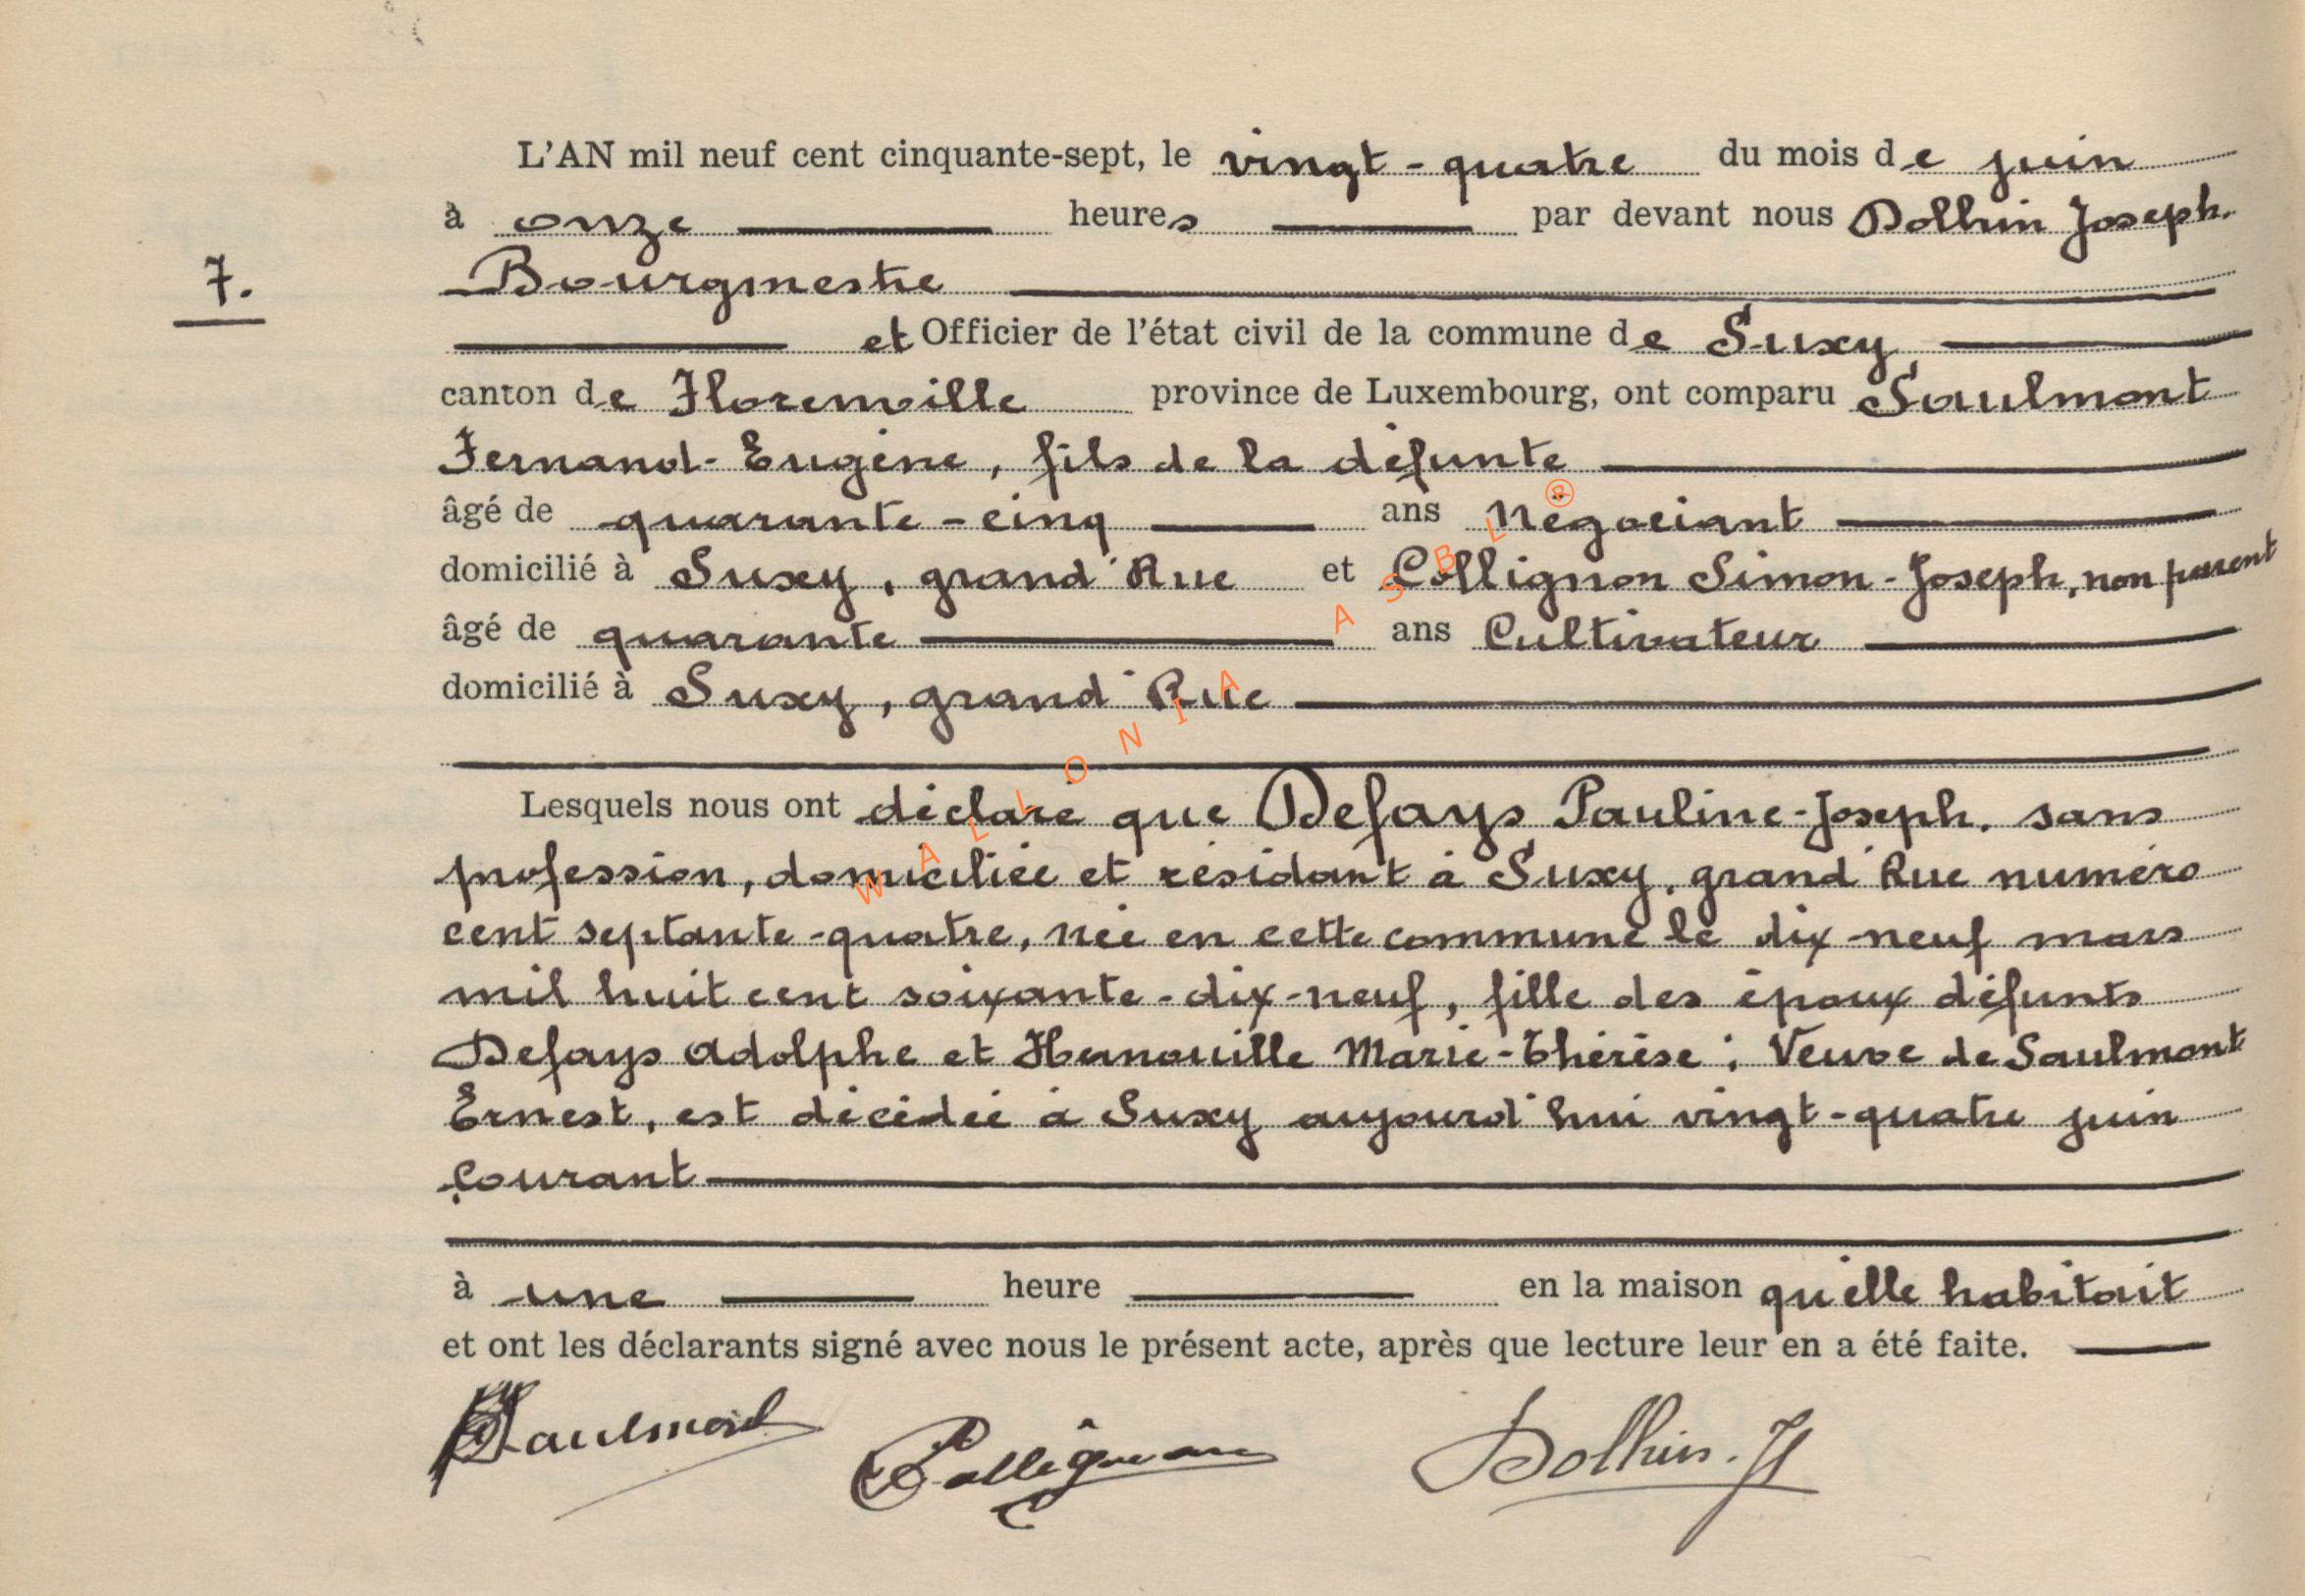 L'AN mil neuf cent cinquante-sept, le vingt-quatre du mois de juin
à onze heures par devant nous Dolhin Joseph.
7.
Bourgmestre
et Officier de l'état civil de la commune de Suxy
canton de Florenville province de Luxembourg, ont comparu Saulmont
Fernand-Eugène, fils de la défunte
âgé de quarante-cinq ans Négociant
domicilié à Suxy, grand'Rue et Collignon Simon-Joseph, non parent
âgé de quarante ans Cultivateur
domicilié à Suxy, grand'Rue
Lesquels nous ont déclaré que Defays Pauline-Joseph, sans
profession, domiciliée et résidant à Suxy, grand'Rue numéro
cent septante-quatre, née en cette commune le dix-neuf mars
mil huit cent soixante-dix-neuf, fille des époux défunts
Defays Adolphe et Marie-Thérèse; Veuve de Saulmont
Ernest, est décédée à Suxy aujourd'hui vingt-quatre juin
courant
à une heure en la maison qu'elle habitait
et ont les déclarants signé avec nous le présent acte, après que lecture leur en a été faite.
Saulmont Collignon Dolhin. J
WALLONIA ASBL ®